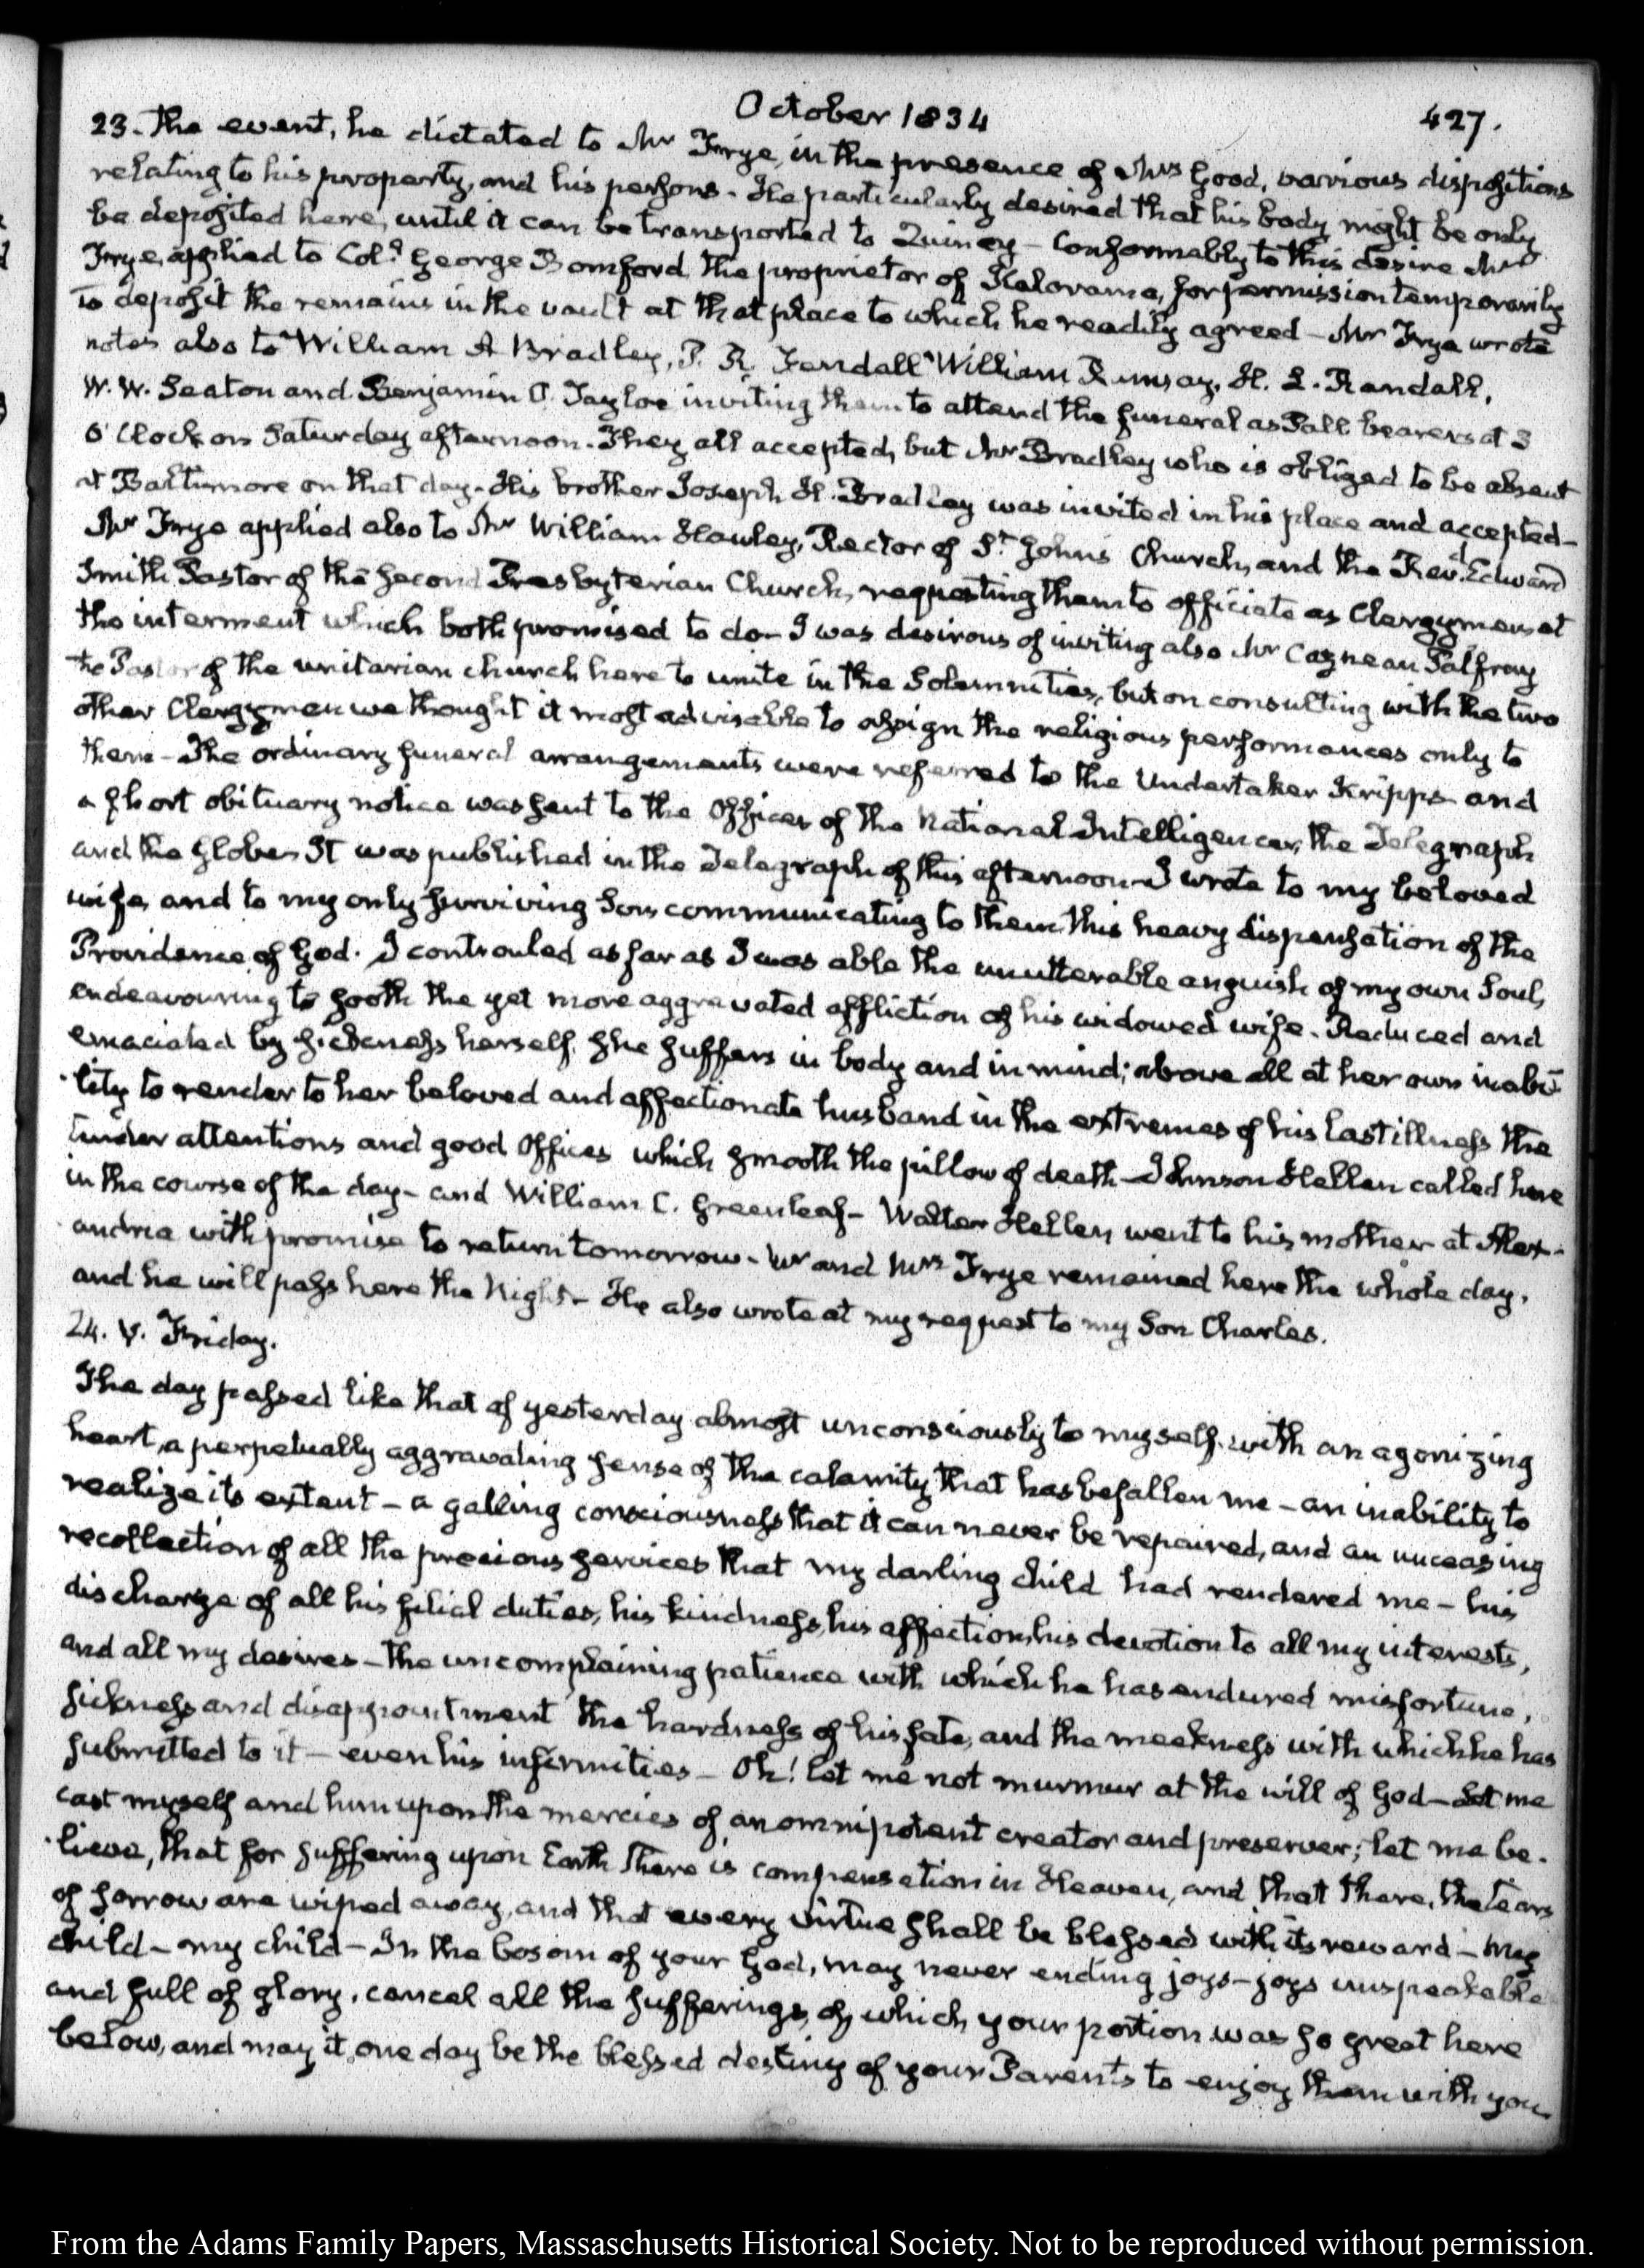 October 1834
427.
23. The event, he dictated to Mr Frye, in the presence of Mrs Good, various dispositions
relating to his property, and his persons. He particularly desired that his body might be only
be deposited here, until it can be transported to Quincy — Conformably to this desire Mr
Frye applied to Col.l George Bomford the proprietor of Kalorama, for permission temporarily
to deposit the remains in the vault at that place to which he readily agreed — Mr Frye wrote
notes also to William A Bradley, P. R. Fendall William Ramsay, H. L. Randall,
W. W. Seaton and Benjamin O. Tayloe inviting them to attend the funeral as Pall bearers at 3
O'Clock on Saturday afternoon. They all accepted, but Mr Bradley who is obliged to be absent
at Baltimore on that day. His brother Joseph H. Bradley was invited in his place and accepted —
Mr Frye applied also to Mr William Hawley, Rector of St Johns Church, and the Revd Edward
Smith Pastor of the second Presbyterian Church, requesting them to officiate as Clergymen at
the interment which both promised to do — I was desirous of inviting also Mr Cazneau Palfrey
the Pastor of the unitarian church here to unite in the Solemnities, but on consulting with the two
other Clergymen we thought it most advisable to assign the religious performances only to
them — The ordinary funeral arrangements were referred to the Undertaker Kripps and
a short obituary notice was sent to the Offices of the National Intelligencer, the Telegraph
and the Globe. It was published in the Telegraph of this afternoon — I wrote to my beloved
wife, and to my only surviving Son communicating to them this heavy dispensation of the
Providence of God. I controuled as far as I was able the unutterable anguish of my own Soul,
endeavouring to sooth the yet more aggravated affliction of his widowed wife. Reduced and
emaciated by sickness herself, she suffers in body and in mind; above all at her own inabi-
-lity to render to her beloved and affectionate husband in the extremes of his last illness the
tender attentions and good Offices which smooth the pillow of death — Johnson Hellen called here
in the course of the day — and William C. Greenleaf — Walter Hellen went to his mother at Alex-
-andria with promise to return tomorrow. Mr and Mrs Frye remained here the whole day,
and he will pass here the Night — He also wrote at my request to my Son Charles.
24. V. Friday.
The day passed like that of yesterday almost unconsciously to myself, with an agonizing
heart, a perpetually aggravating sense of the calamity that has befallen me — an inability to
realize its extent — a galling consciousness that it can never be repaired, and an unceasing
recollection of all the precious services that my darling child had rendered me — his
discharge of all his filial duties, his kindness, his affection, his devotion to all my interests,
and all my desires — the uncomplaining patience with which he has endured misfortune,
sickness and disappointment the hardness of his fate, and the meekness with which he has
submitted to it — even his infirmities — Oh! let me not murmur at the will of God — Let me
cast myself and him upon the mercies of an omnipotent creator and preserver; let me be-
-lieve, that for suffering upon Earth there is compensation in Heaven, and that there, the tears
of sorrow are wiped away, and that every virtue shall be blessed with its reward — My
child — my child — In the bosom of your God, may never ending joys — joys unspeakable
and full of glory, cancel all the sufferings, of which your portion was so great here
below, and may it one day be the blessed destiny of your Parents to enjoy them with you
From the Adams Family Papers, Massaschusetts Historical Society. Not to be reproduced without permission.